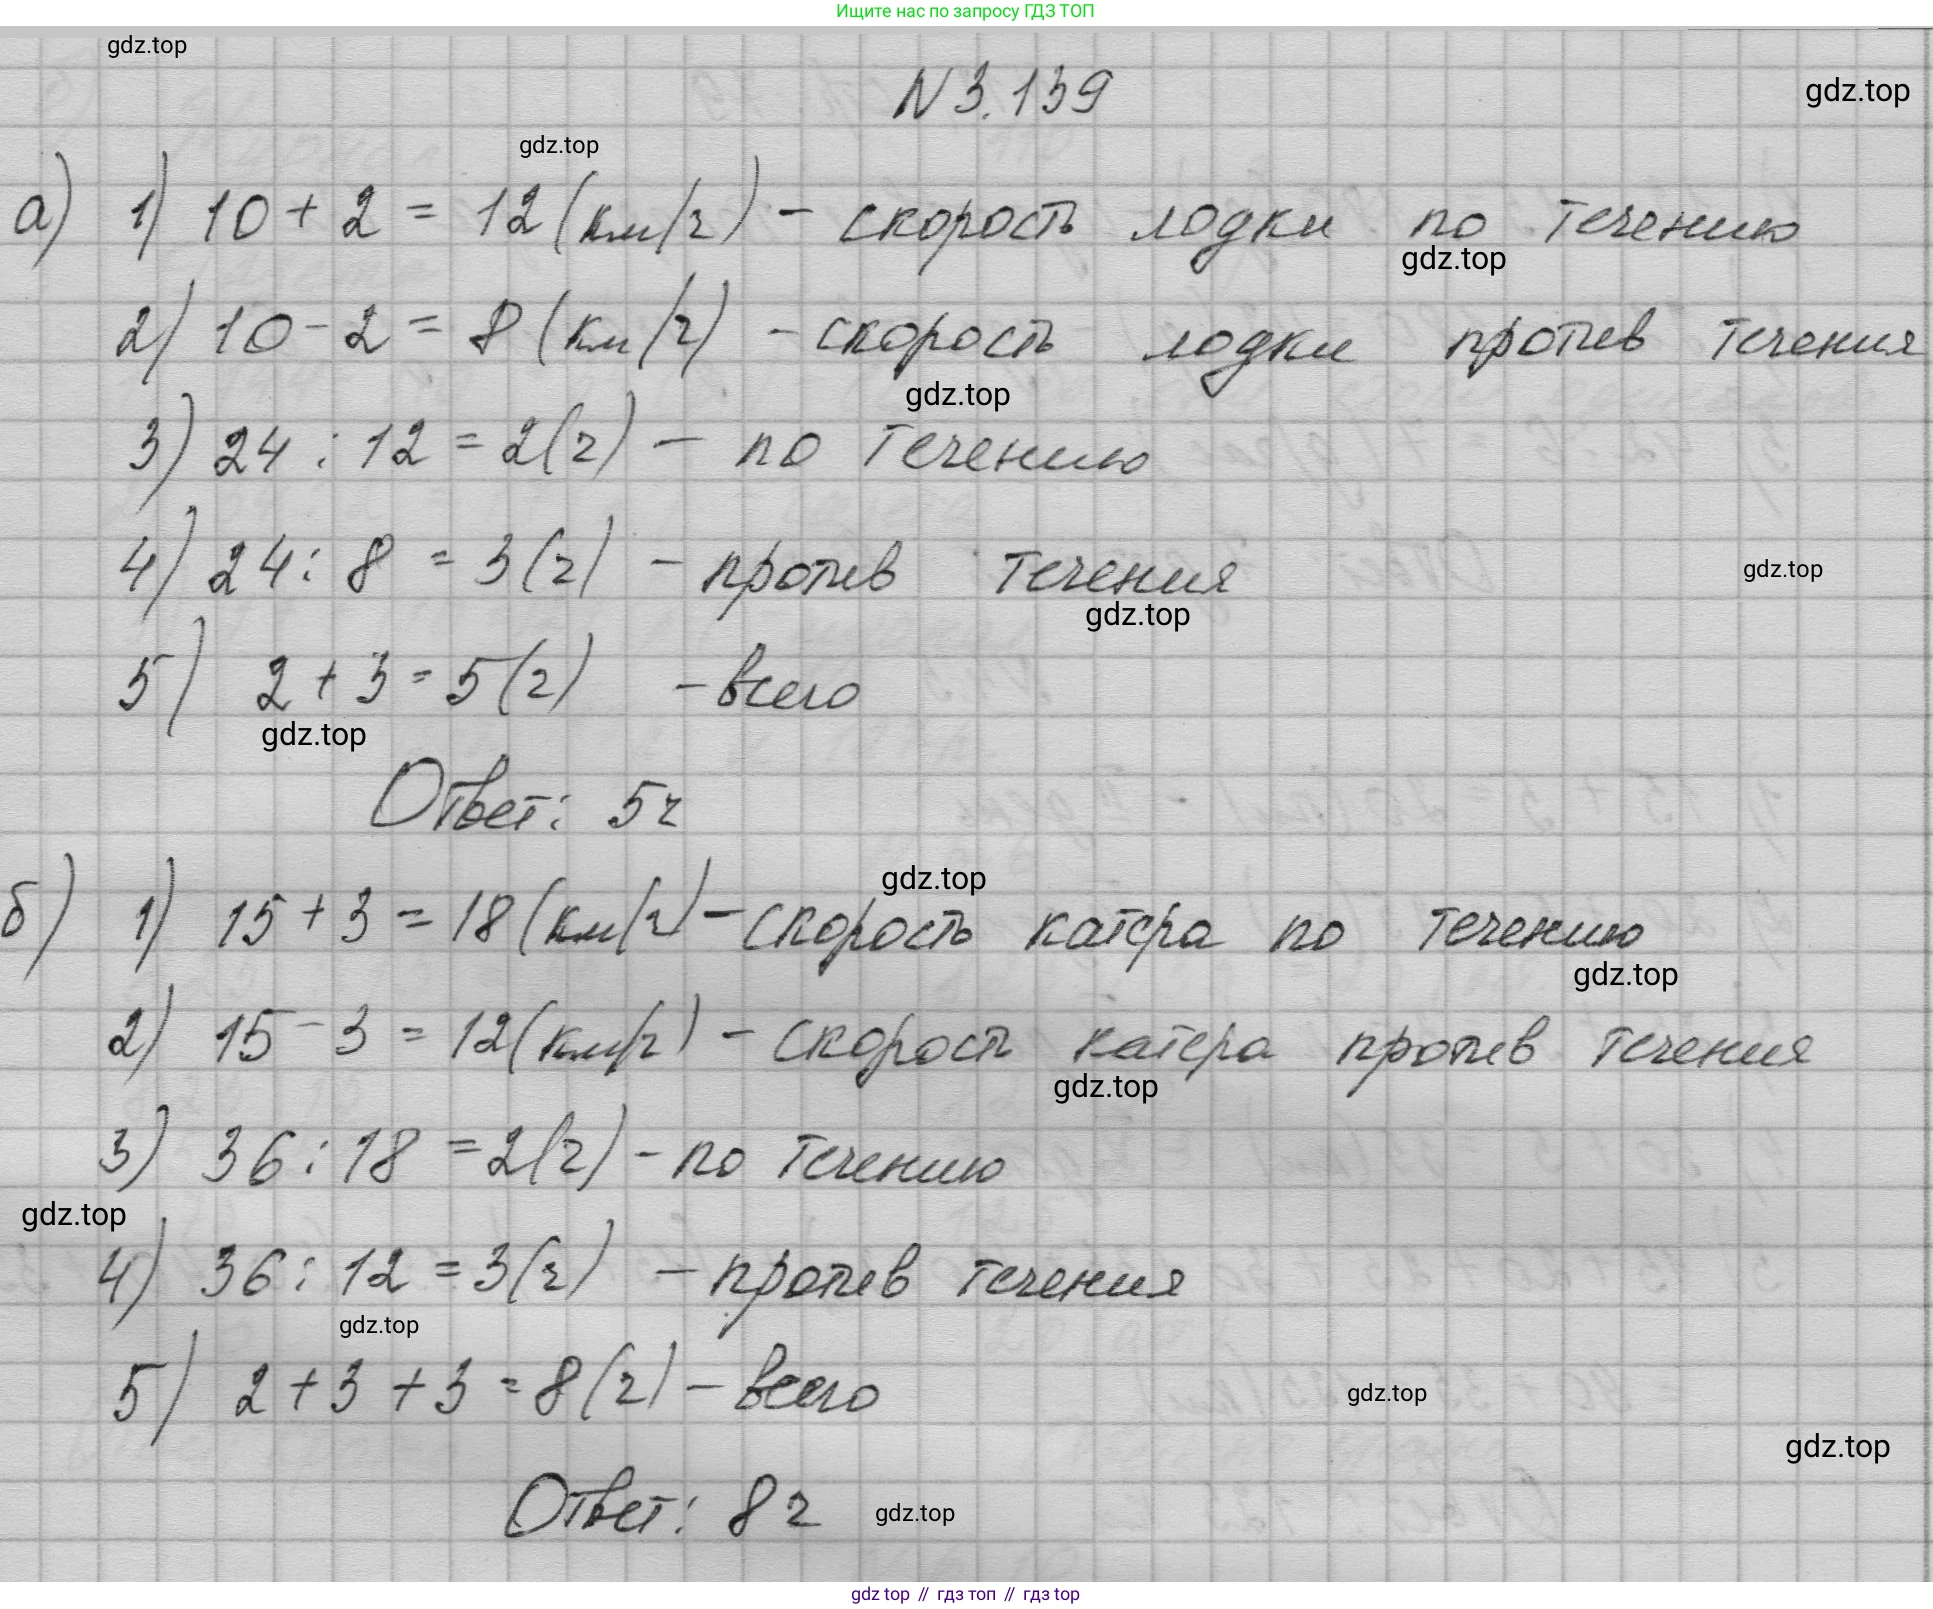 Ищите нас по запросу ГДЗ ТОП
gdz.top
N 3.139
gdz.top
gdz.top
а) 1) 10 + 2 = 12 (км/ч) - скорость лодки по течению
gdz.top
2) 10 - 2 = 8 (км/ч) - скорость лодки против течения
gdz.top
3) 24 : 12 = 2 (ч) - по течению
4) 24 : 8 = 3 (ч) - против течения
gdz.top
gdz.top
5) 2 + 3 = 5 (ч) - всего
gdz.top
Ответ: 5 ч
gdz.top
б) 1) 15 + 3 = 18 (км/ч) - скорость катера по течению
gdz.top
2) 15 - 3 = 12 (км/ч) - скорость катера против течения
gdz.top
3) 36 : 18 = 2 (ч) - по течению
gdz.top
4) 36 : 12 = 3 (ч) - против течения
gdz.top
5) 2 + 3 + 3 = 8 (ч) - всего
gdz.top
gdz.top
Ответ: 8 ч
gdz.top
gdz top // гдз топ // гдз top